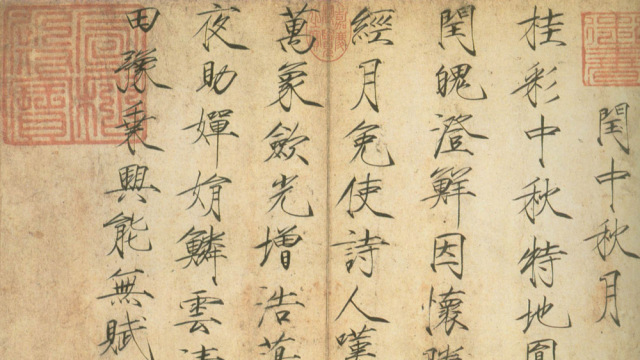 閏中秋月
桂彩中秋特地圓
閏魄澄鮮因懷勝
經月免使詩人嘆
萬象歛光增浩蕩
夜助嬋娟鱗雲清
田豫乘興能無賦